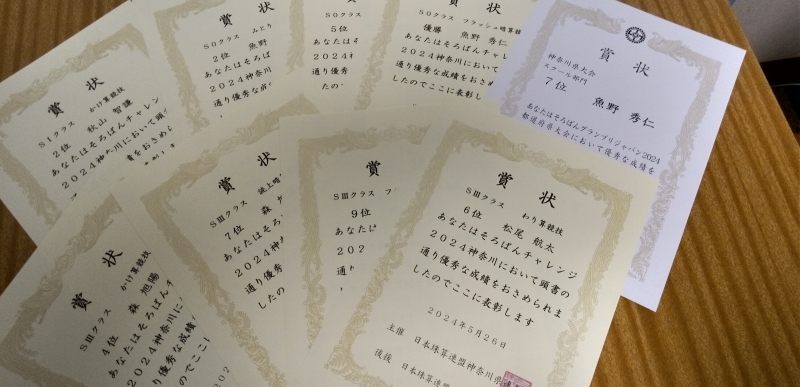 賞状
SⅠクラス かけ算競技
2位 秋山 智謙
あなたはそろばんチャレン
2024神奈川において頭
通り優秀な成績をおさめら
賞状
S0クラス みとり
2位 魚野
あなたはそろば
2024神奈川
通り優秀な成
S0クラス
5位
あなたは
2024
通り優秀な
たの
S0クラス フラッシュ暗算競技
優勝 魚野 秀仁
あなたはそろばんチャレ
2024神奈川において
通り優秀な成績をおさめ
したのでここに表彰し
賞状
神奈川県大会
スクール部門
7位 魚野 秀仁
あなたはそろばんグランプリジャパン2024
都道府県大会において優秀な成績を
賞状
SⅢクラス かけ算競技
4位 森 旭陽
あなたはそろばんチ
2024神奈川に
通り優秀な成績
したのでここ
202
賞状
SⅢクラス 読上暗
7位 森
あなたはそろ
2024神
通り優秀な
したの
賞
SⅢクラス フ
9位
あなた
202
通り
賞状
SⅢクラス わり算競技
6位 松尾 航太
あなたはそろばんチャレンジ
2024神奈川において頭書の
通り優秀な成績をおさめられま
したのでここに表彰します
2024年5月26日
主催 日本珠算連盟神奈川県
後援 日本珠算連盟